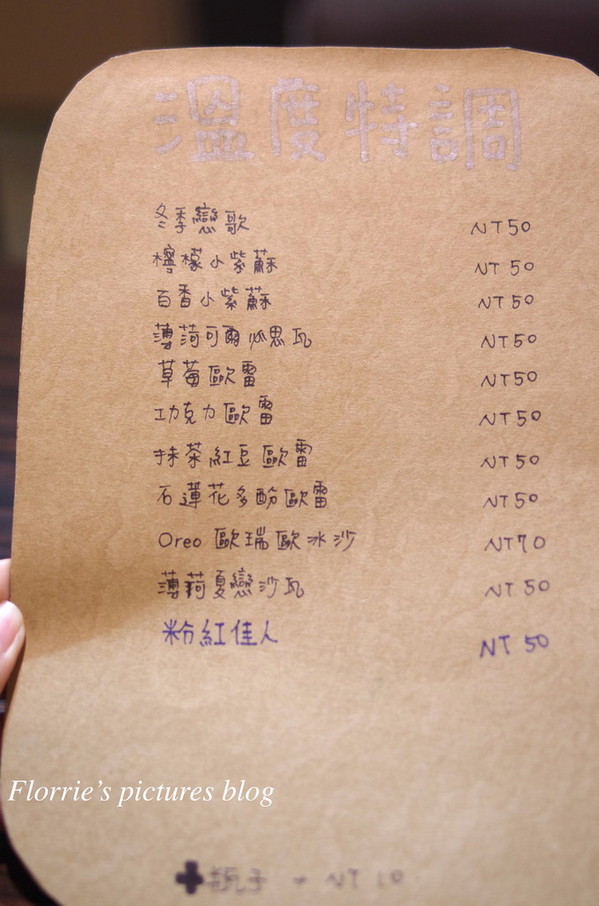 溫度特調
冬季戀歌 NT50
檸檬小紫蘇 NT 50
百香小紫蘇 NT 50
薄荷可爾必思瓦 NT50
草莓歐雷 NT50
巧克力歐雷 NT50
抹茶紅豆歐雷 NT50
石蓮花多酚歐雷 NT50
Oreo 歐瑞歐冰沙 NT70
薄荷夏戀沙瓦 NT 50
粉紅佳人 NT 50
Florrie's pictures blog
✚瓶子 → NT 10